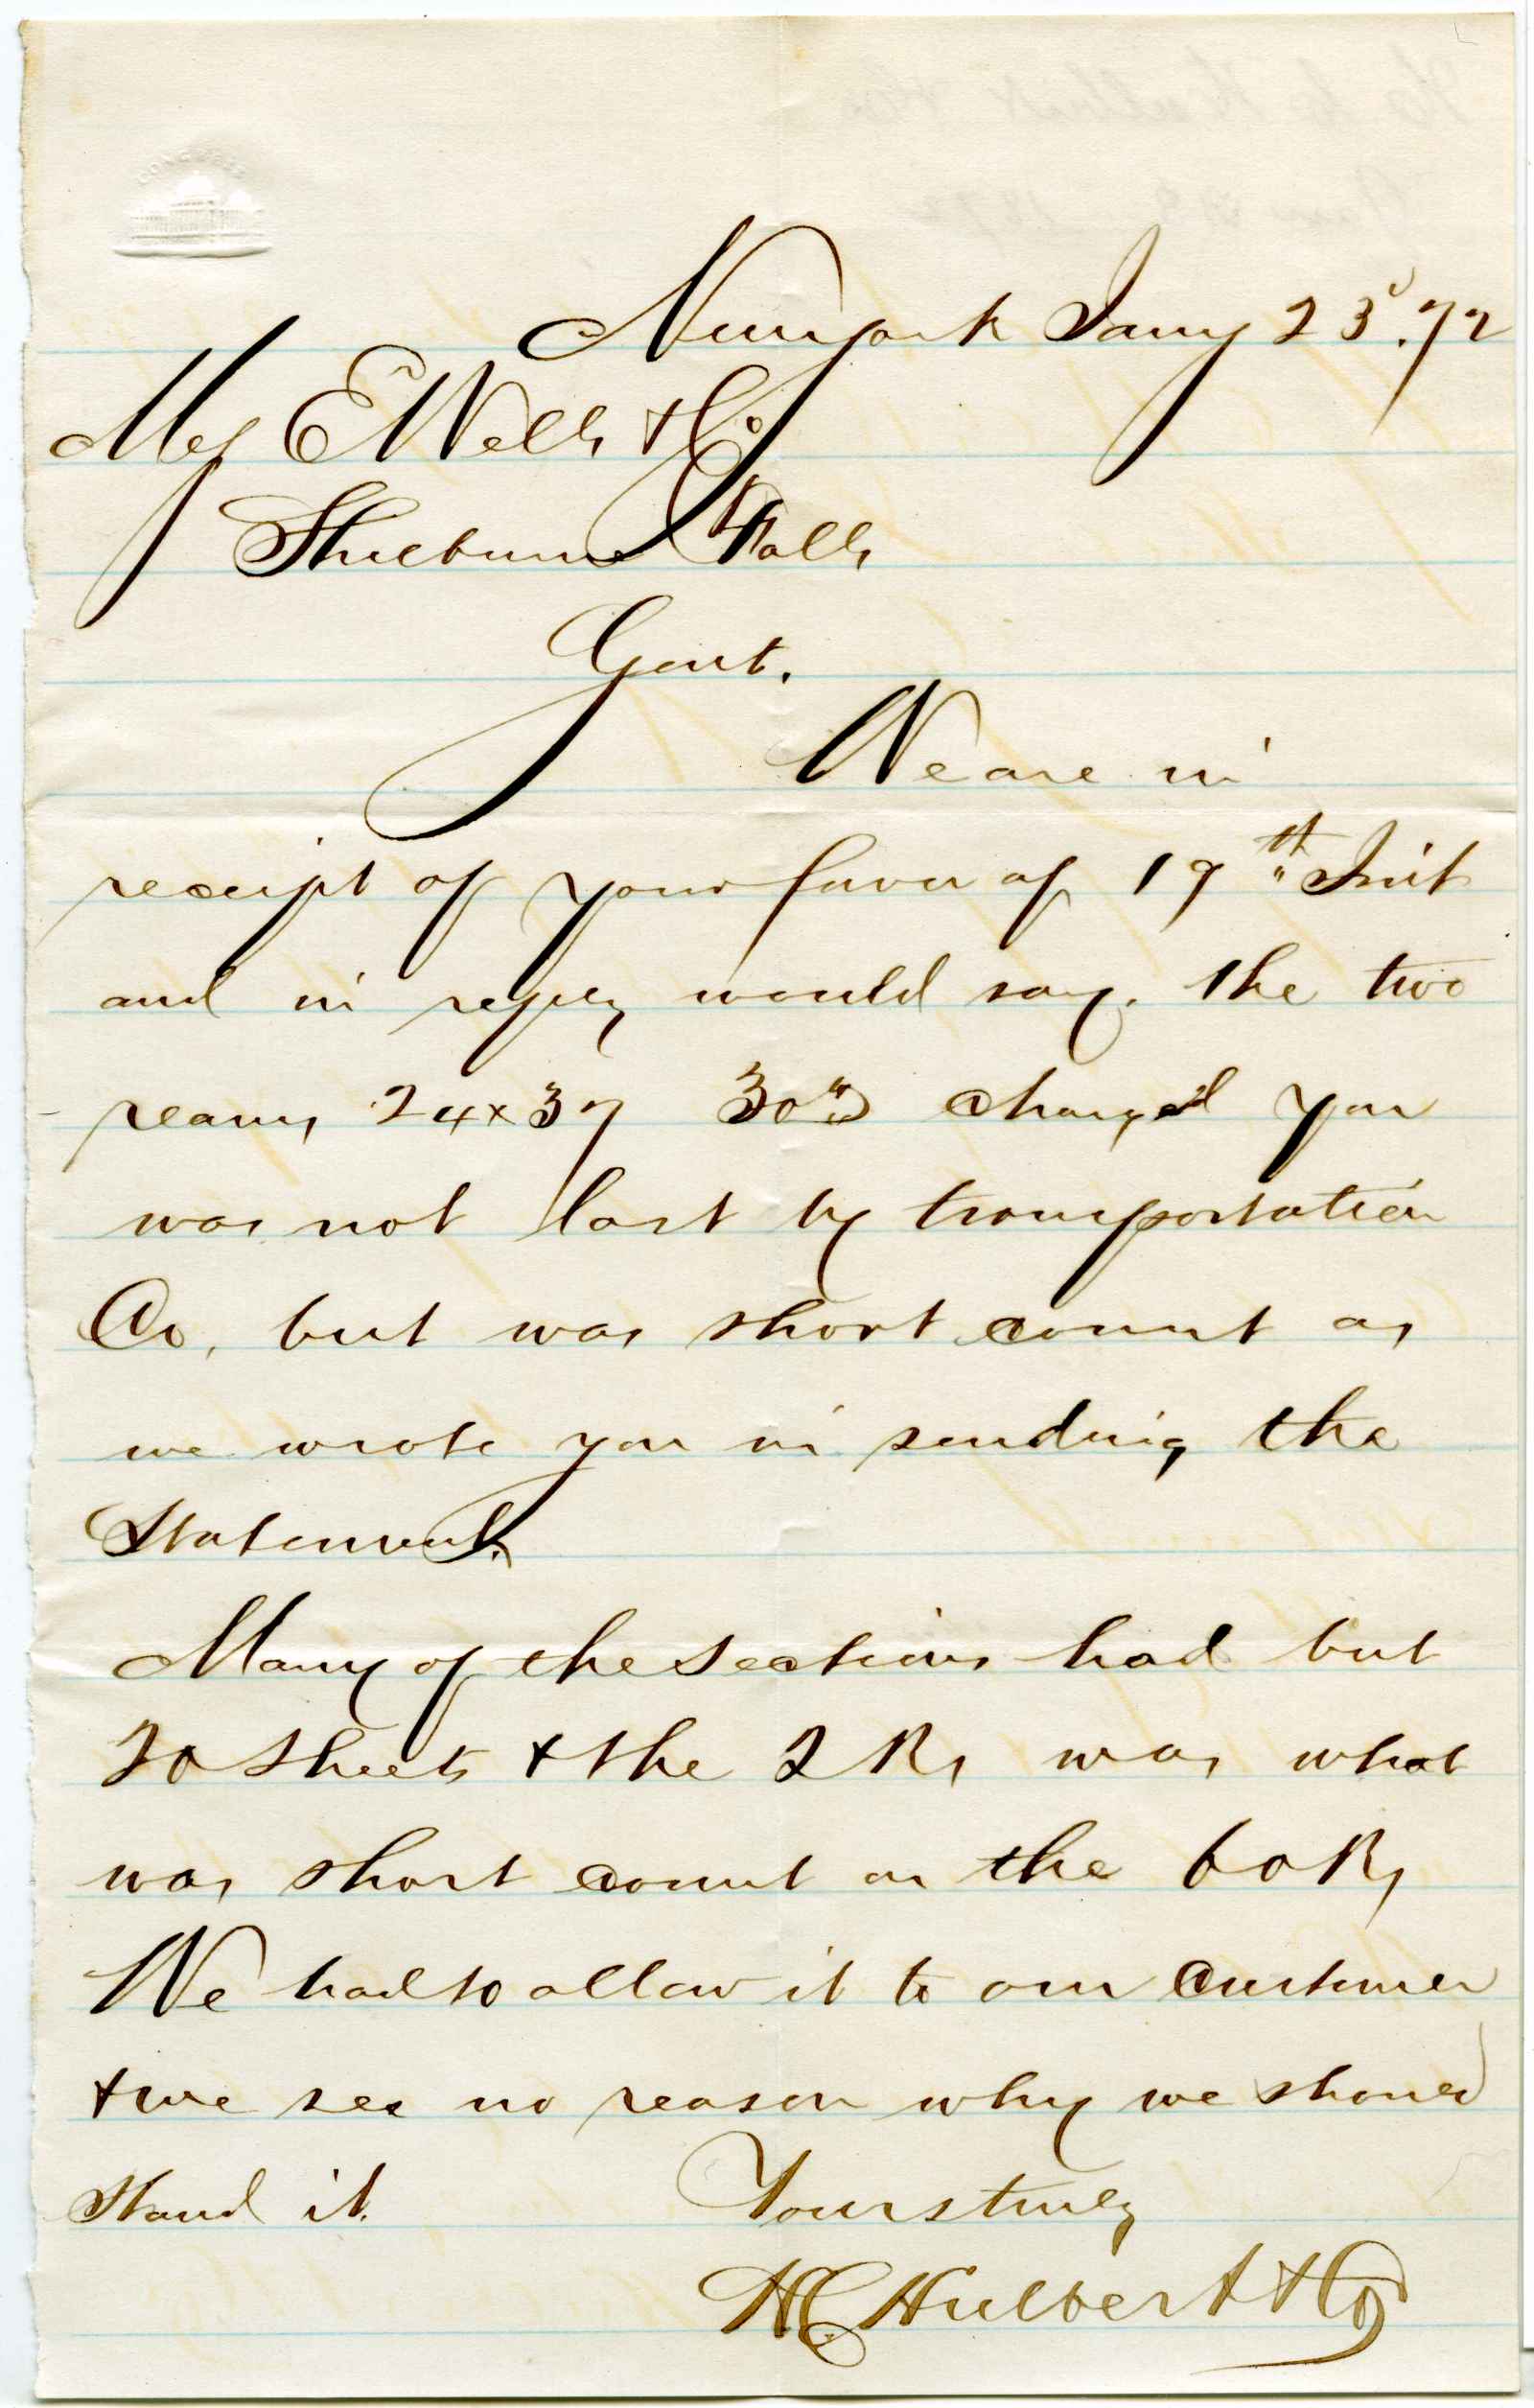 CONGRESS
New York Jany 23d. 72
Mes E Wells & Co
Shelburne Falls
Gent.
We are in
receipt of your favor of 19th Inst
and in reply would say. the two
reams 24x37 30lb charged you
was not lost by transportation
Co, but was short count as
we wrote you in sending the
Statement.
Many of the sections had but
20 sheets & the 2 Rs was what
was short count on the 60 Rs
We had to allow it to our customer
& we see no reason why we should
stand it.
Yours truly
HC Hulbert & Co